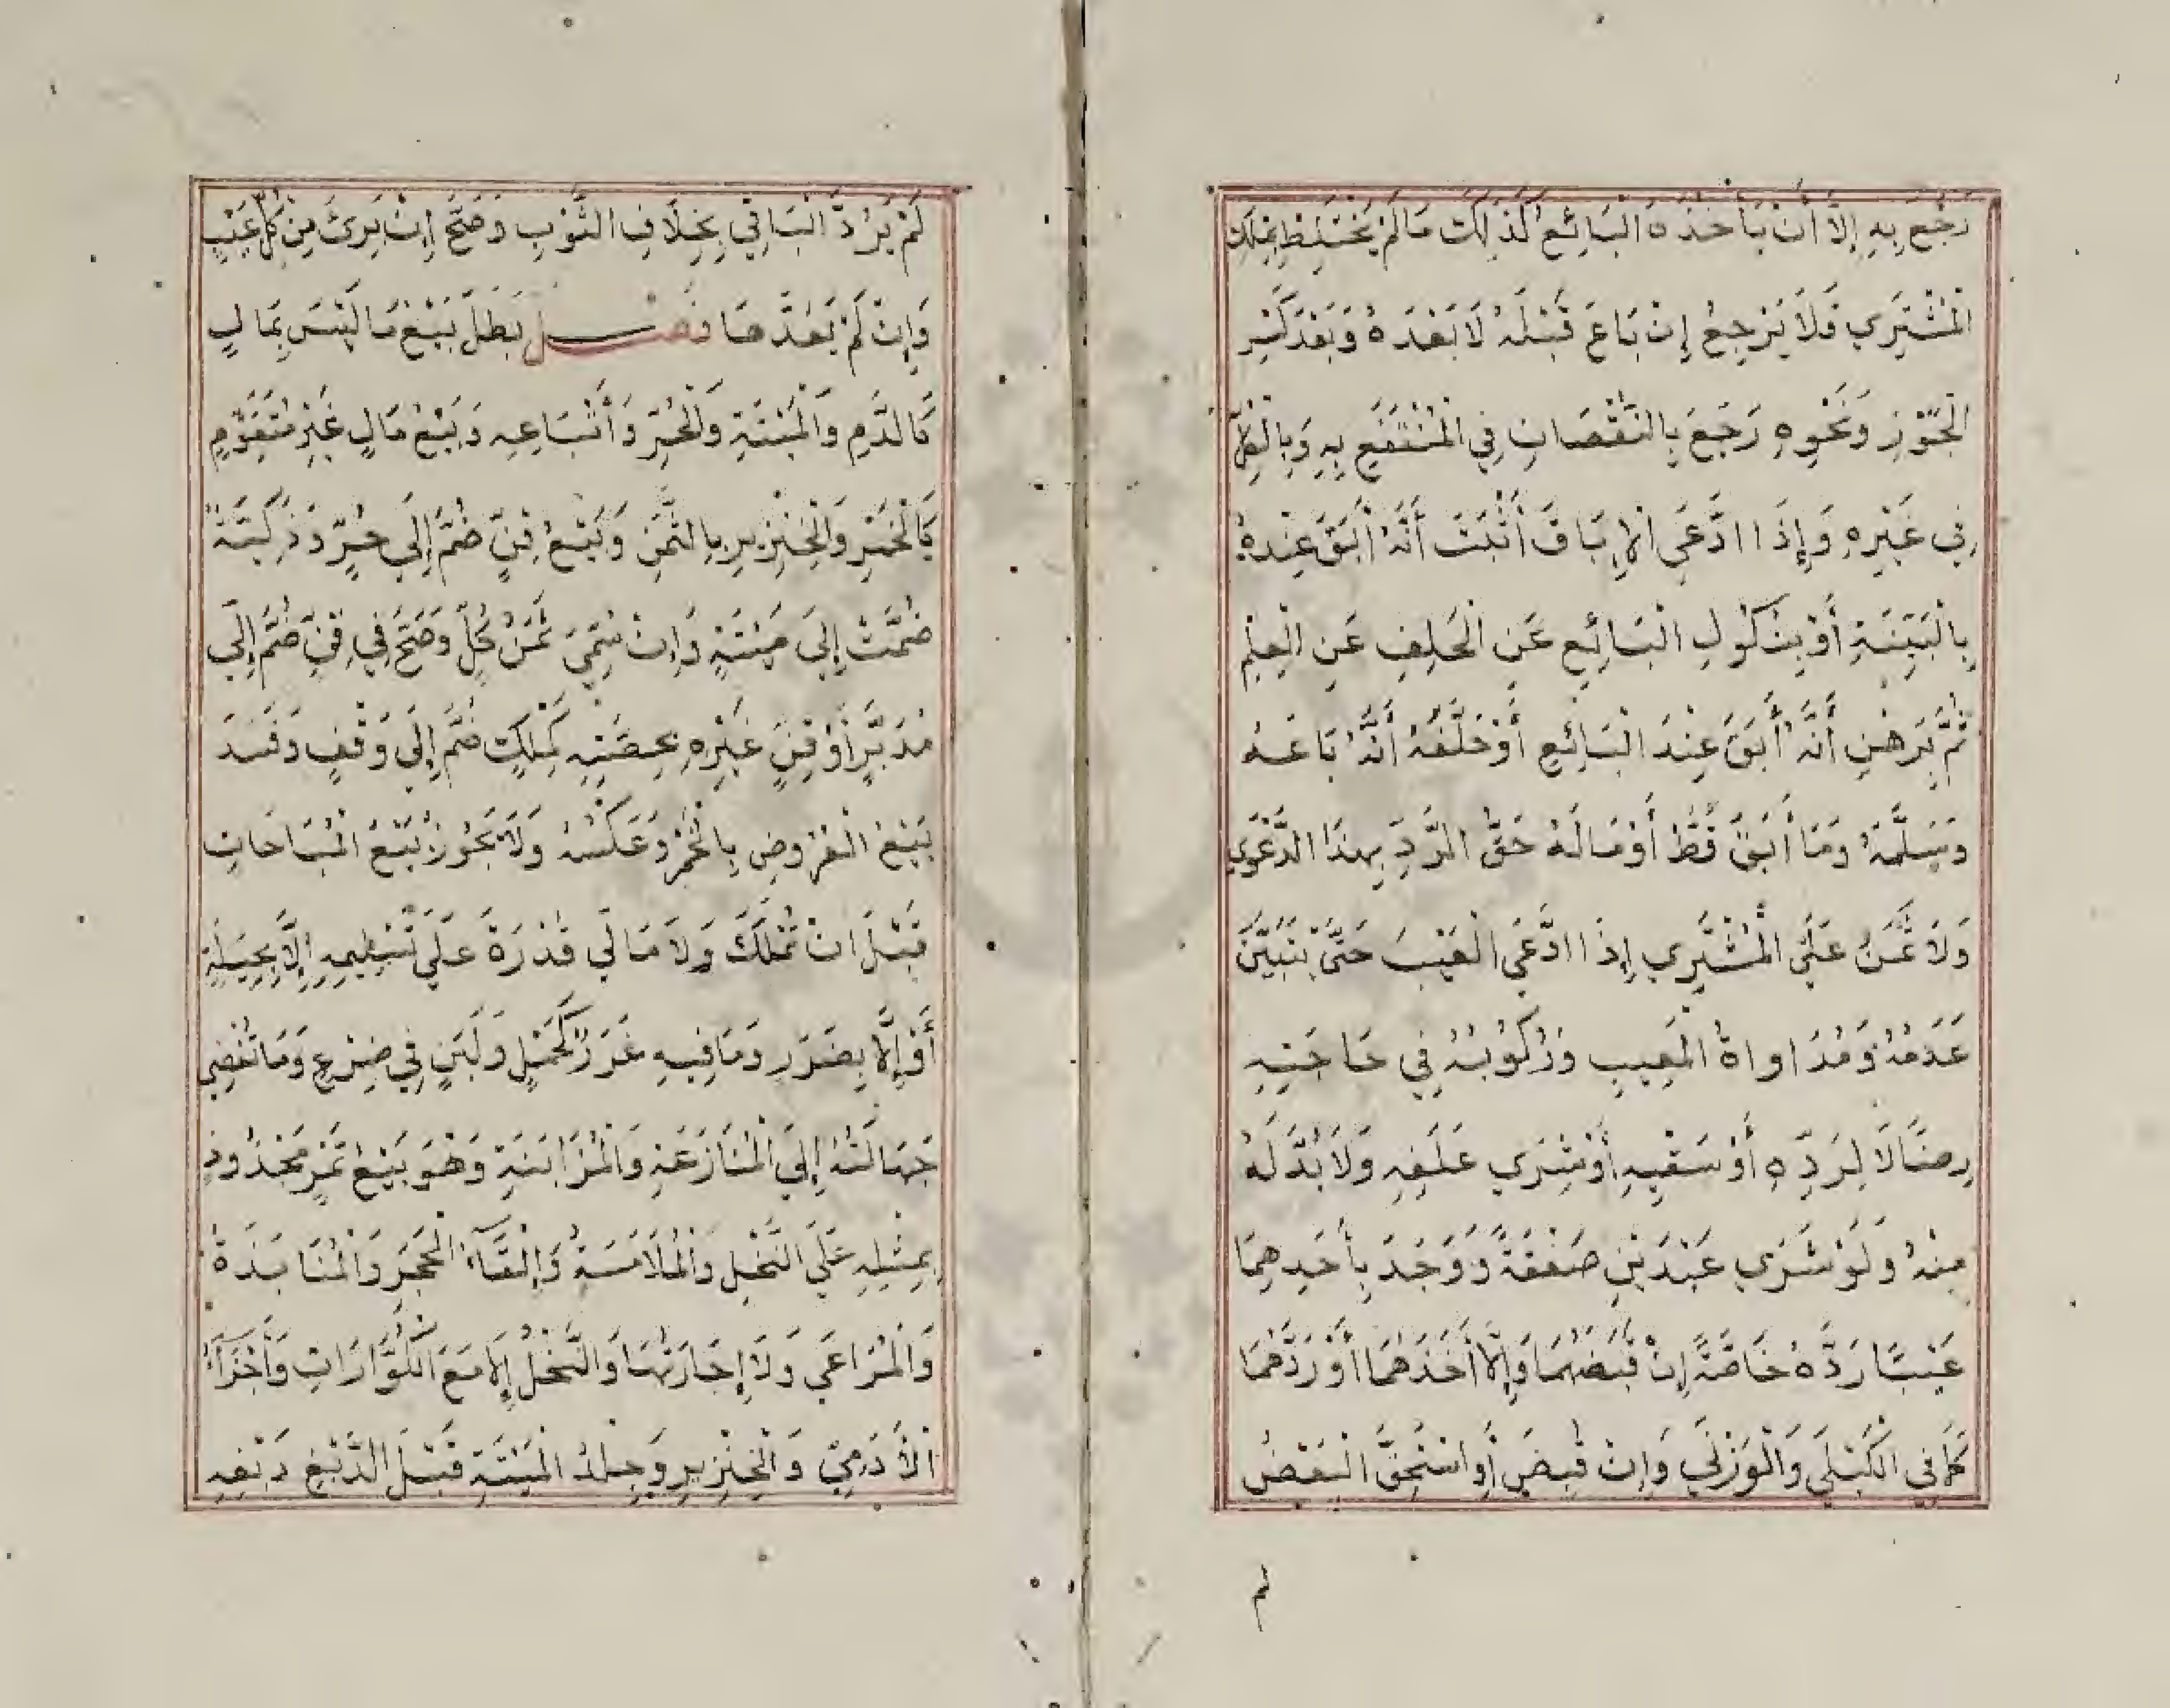 رَجَعَ بِهِ إِلَّا أَنْ يَأْخُذَهُ الْبَائِعُ كَذَلِكَ مَا لَمْ يَخْتَلِطْ بِمِلْكِ
الْمُشْتَرِي فَلَا يَرْجِعُ إِنْ بَاعَ قَبْلَهُ لَا بَعْدَهُ وَبَعْدَ كَسْرِ
الْجَوْزِ وَنَحْوِهِ رَجَعَ بِالنُّقْصَانِ فِي الْمُنْتَفَعِ بِهِ وَبِالْكُلِّ
فِي غَيْرِهِ وَإِذَا ادَّعَى الْإِبَاقَ أَثْبَتَ أَنَّهُ أَبَقَ عِنْدَهُ
بِالْبَيِّنَةِ أَوْ بِنُكُولِ الْبَائِعِ عَنِ الْحَلِفِ عَنِ الْعِلْمِ
ثُمَّ بَرْهَنَ أَنَّهُ أَبَقَ عِنْدَ الْبَائِعِ أَوْ حَلَّفَهُ أَنَّهُ بَاعَهُ
وَسَلَّمَهُ وَمَا أَبَقَ قَطُّ أَوْ مَا لَهُ حَقُّ الرَّدِّ بِهَذَا الدَّعْوَي
وَلَا ثَمَنَ عَلَى الْمُشْتَرِي إِذَا ادَّعَى الْعَيْبَ حَتَّى يَتَبَيَّنَ
عَدَمُهُ وَمُدَاوَاةُ الْمَعِيبِ وَرُكُوبُهُ فِي حَاجَتِهِ
رِضًا لَا لِرَدِّهِ أَوْ سَقْيِهِ أَوْ شِرَي عَلَفِهِ وَلَا بُدَّ لَهُ
مِنْهُ وَلَوْ شَرَي عَبْدَيْنِ صَفْقَةً وَوَجَدَ بِأَحَدِهِمَا
عَيْبًا رَدَّهُ خَاصَّةً إِنْ قَبَضَهُمَا وَإِلَّا أَخَذَهُمَا أَوْ رَدَّهُمَا
كَمَا فِي الْكَيْلِي وَالْوَزْنِي وَإِنْ قُبِضَ أَوِ اسْتُحِقَّ الْبَعْضُ
لم
لَمْ يَرُدَّ الْبَاقِي بِخِلَافِ الثَّوْبِ وَصَحَّ إِنْ بَرِئَ مِنْ كُلِّ عَيْبٍ
وَإِنْ لَمْ يَعُدَّهَا فَصْل بَطَلَ بَيْعُ مَا لَيْسَ بِمَالٍ
كَالدَّمِ وَالْمَيْتَةِ وَالْحُرِّ وَأَتْبَاعِهِ وَبَيْعُ مَالٍ غَيْرِ مُتَقَوِّمٍ
كَالْخَمْرِ وَالْخِنْزِيرِ بِالثَّمَنِ وَبَيْعُ قِنٍّ ضُمَّ إِلَى حُرٍّ وَذَكِيَّةٌ
ضُمَّتْ إِلَى مَيْتَةٍ وَإِنْ سُمِّيَ ثَمَنُ كُلٍّ وَصَحَّ فِي قِنٍّ ضُمَّ إِلَى
مُدَبَّرٍ أَوْ قِنِّ غَيْرِهِ بِحِصَّتِهِ كَمِلْكٍ ضُمَّ إِلَى وَقْفٍ وَفَسَدَ
بَيْعُ الْعُرُوضِ بِالْخَمْرِ وَعَكْسُهُ وَلَا يَجُوزُ بَيْعُ الْمُبَاحَاتِ
قَبْلَ انْ تُمْلَكَ وَلَا مَا لَي قُدْرَةً عَلَى تَسْلِيمِهِ إِلَّا بِحِيلَةٍ
أَوْ إِلَّا بِضَرَرٍ وَمَا فِيهِ غَرَرٌ كَحَمْلٍ وَلَبَنٍ فِي ضَرْعٍ وَمَا تُفْضِي
جَهَالَتُهُ إِلَى الْمُنَازَعَةِ وَالْمُزَابَنَةِ وَهُوَ بَيْعُ تَمْرٍ مَجْذُوذٍ
بِمِثْلِهِ عَلَى النَّخْلِ وَالْمُلَامَسَةُ وَإِلْقَاءُ الْحَجَرِ وَالْمُنَابَذَةُ
وَالْمَرَاعَي وَلَا إِجَارَتُهَا وَالنَّحْلُ إِلَّا مَعَ الْكُوَّارَاتِ وَأَجْزَاءُ
الْأَدَمِيِّ وَالْخِنْزِيرِ وَجِلْدُ الْمَيْتَةِ قَبْلَ الدَّبْغِ وَبَعْدِهِ